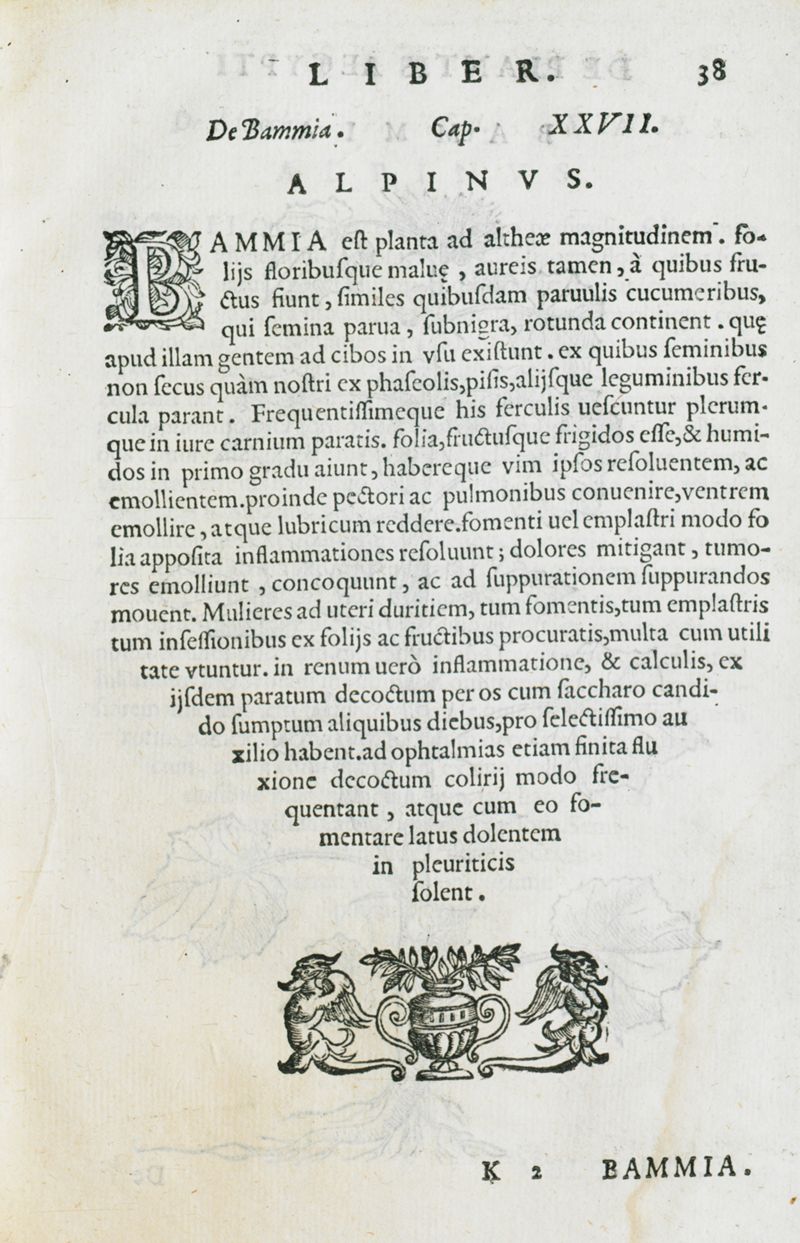 LIBER. 38
De Bammia. Cap. XXVII.
ALPINVS.
BAMMIA eſt planta ad altheæ magnitudinem. fo-
lijs floribuſque maluę, aureis tamen, à quibus fru-
ctus fiunt, ſimiles quibuſdam paruulis cucumeribus,
qui ſemina parua, ſubnigra, rotunda continent. quę
apud illam gentem ad cibos in vſu exiſtunt. ex quibus ſeminibus
non ſecus quàm noſtri ex phaſeolis, piſis, alijſque leguminibus fer-
cula parant. Frequentiſſimeque his ferculis ueſcuntur plerum-
que in iure carnium paratis. folia, fructuſque frigidos eſſe, & humi-
dos in primo gradu aiunt, habereque vim ipſos reſoluentem, ac
emollientem. proinde pectori ac pulmonibus conuenire, ventrem
emollire, atque lubricum reddere. fomenti uel emplaſtri modo fo
lia appoſita inflammationes reſoluunt; dolores mitigant, tumo-
res emolliunt, concoquunt, ac ad ſuppurationem ſuppurandos
mouent. Mulieres ad uteri duritiem, tum fomentis, tum emplaſtris
tum inſeſſionibus ex folijs ac fructibus procuratis, multa cum utili
tate vtuntur. in renum uerò inflammatione, & calculis, ex
ijſdem paratum decoctum per os cum ſaccharo candi-
do ſumptum aliquibus diebus, pro ſelectiſſimo au
xilio habent. ad ophtalmias etiam finita flu
xione decoctum colirij modo fre-
quentant, atque cum eo fo-
mentare latus dolentem
in pleuriticis
ſolent.
K 2 BAMMIA.